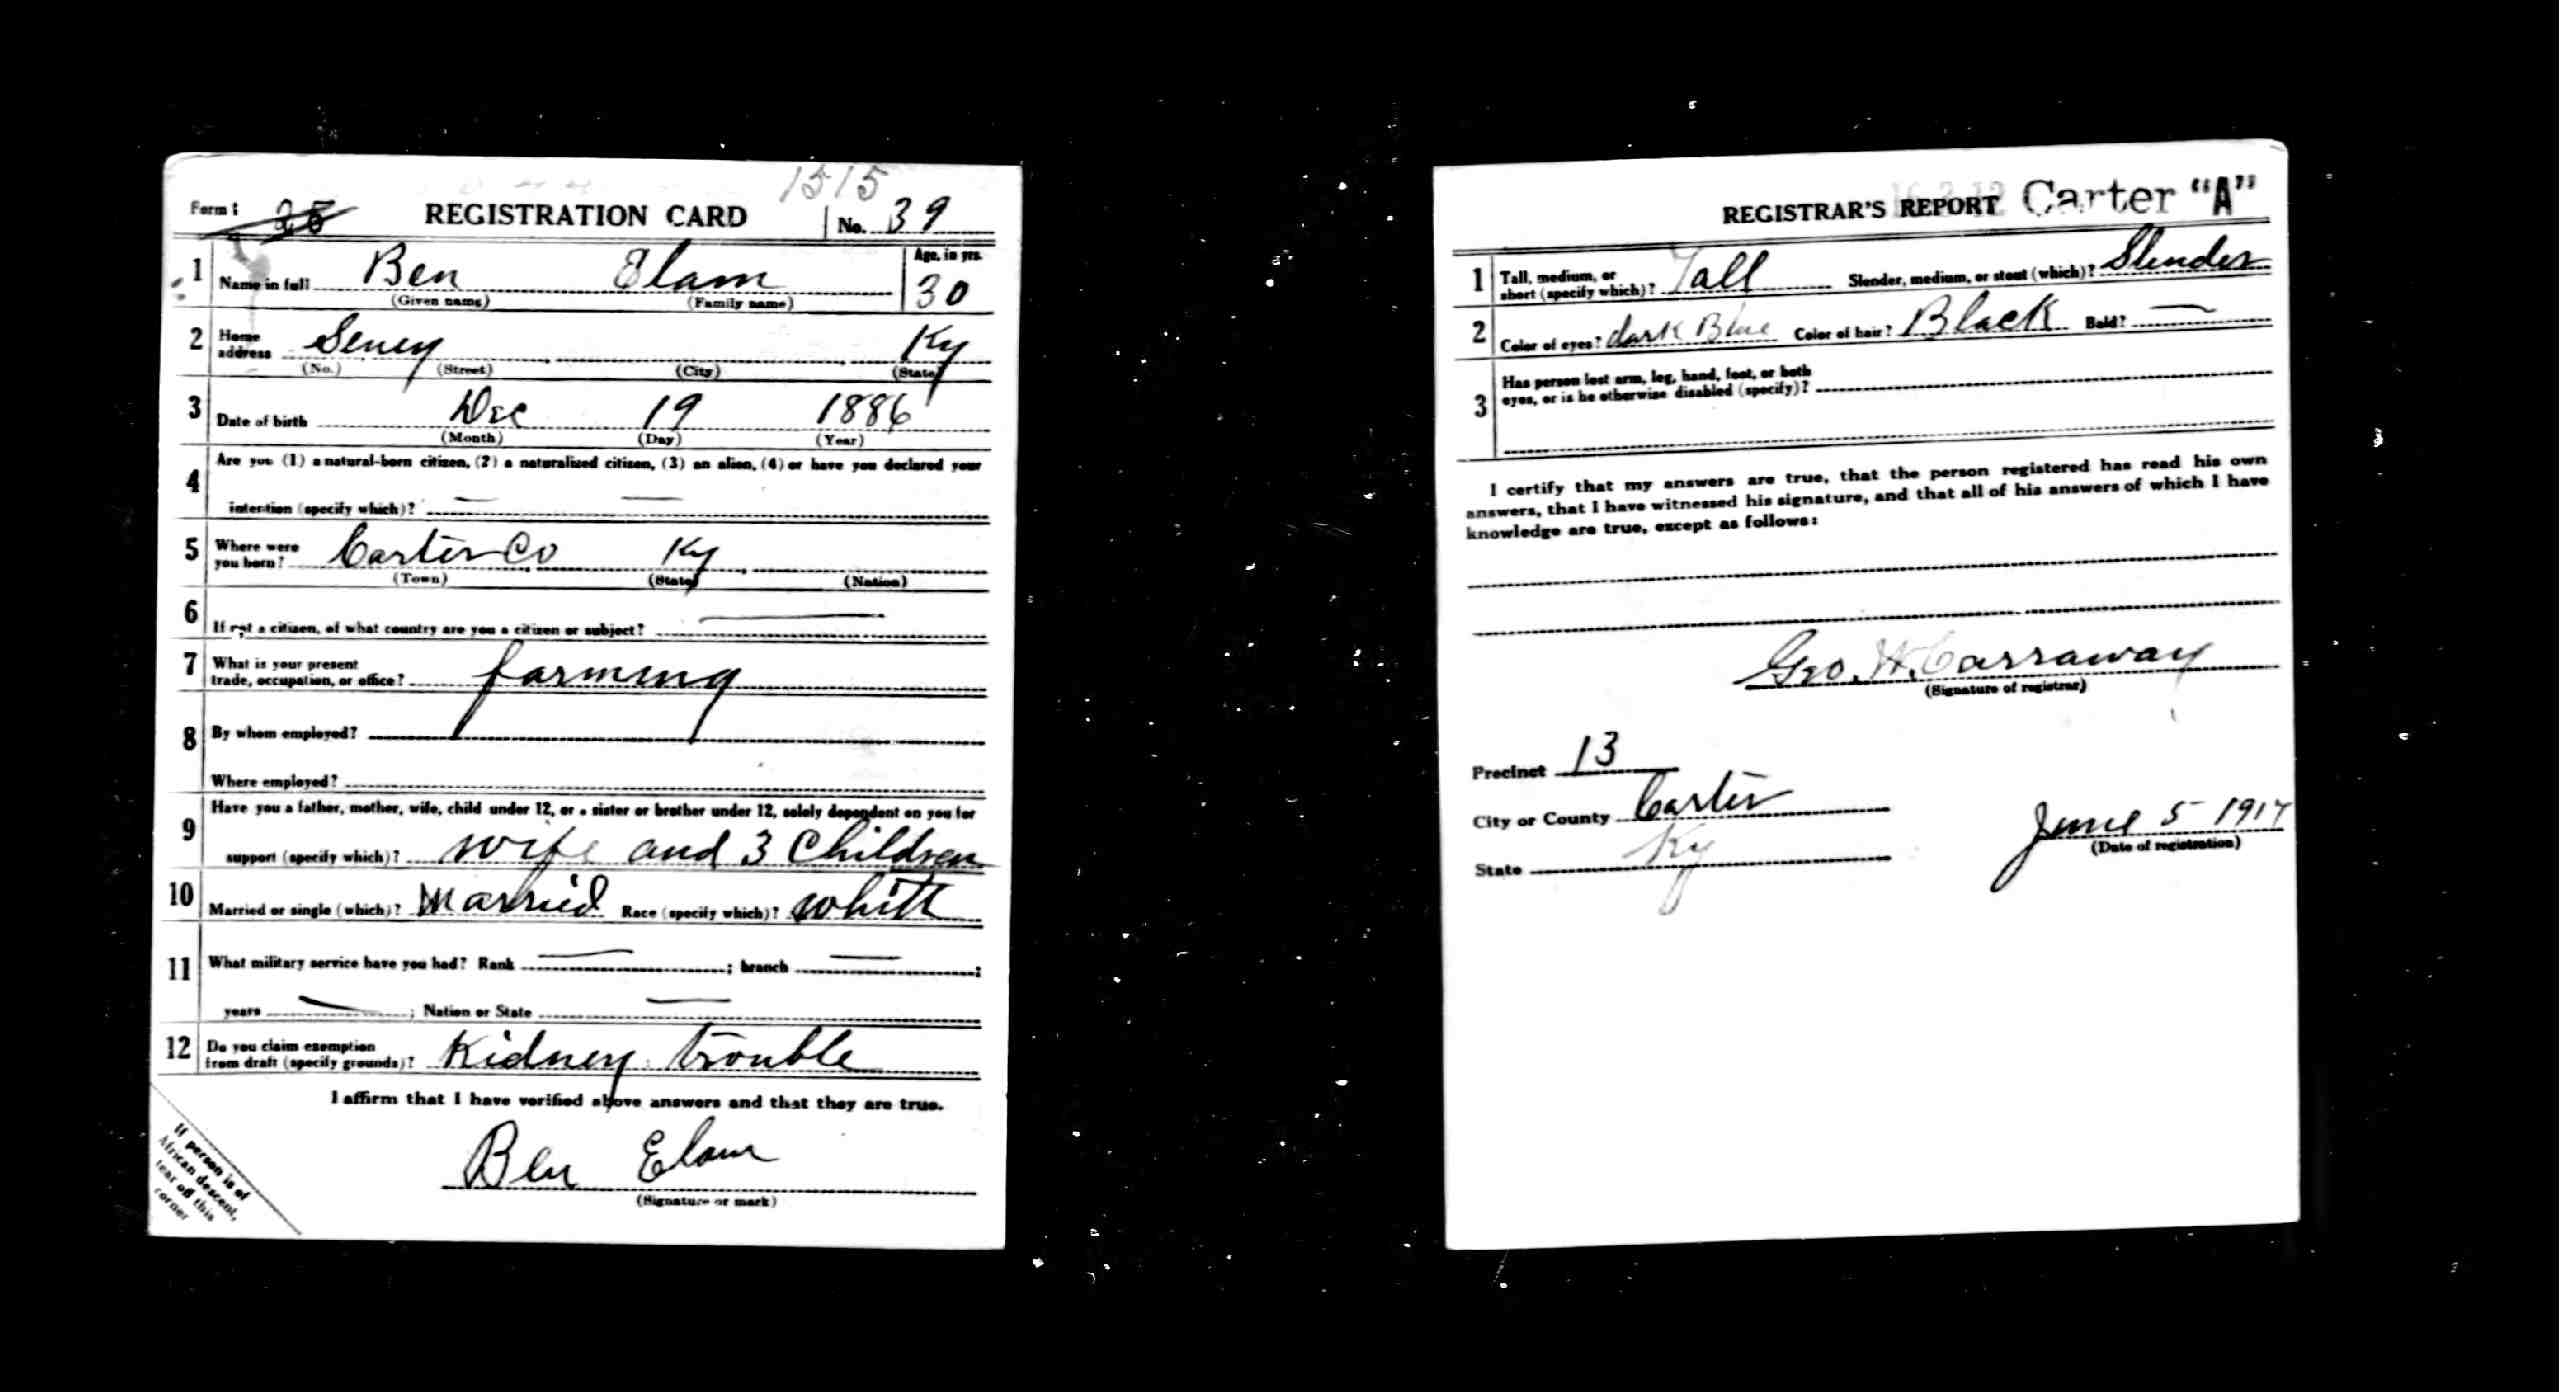 1515
Form 1 35 REGISTRATION CARD No. 39
1 Name in full Ben Elam Age, in yrs. 30
(Given name) (Family name)
2 Home address Seney Ky
(No.) (Street) (City) (State)
3 Date of birth Dec 19 1886
(Month) (Day) (Year)
4 Are you (1) a natural-born citizen, (2) a naturalized citizen, (3) an alien, (4) or have you declared your
intention (specify which)? — —
5 Where were you born? Carter Co Ky
(Town) (State) (Nation)
6 If not a citizen, of what country are you a citizen or subject? —
7 What is your present trade, occupation, or office? farming
8 By whom employed?
Where employed?
9 Have you a father, mother, wife, child under 12, or a sister or brother under 12, solely dependent on you for
support (specify which)? wife and 3 Children
10 Married or single (which)? Married Race (specify which)? white
11 What military service have you had? Rank — ; branch — ;
years — ; Nation or State —
12 Do you claim exemption from draft (specify grounds)? Kidney trouble
I affirm that I have verified above answers and that they are true.
Ben Elam
(Signature or mark)
If person is of
African descent,
tear off this
corner
REGISTRAR'S REPORT Carter "A"
1 Tall, medium, or short (specify which)? Tall Slender, medium, or stout (which)? Slender
2 Color of eyes? dark Blue Color of hair? Black Bald? —
3 Has person lost arm, leg, hand, foot, or both
eyes, or is he otherwise disabled (specify)?
I certify that my answers are true, that the person registered has read his own
answers, that I have witnessed his signature, and that all of his answers of which I have
knowledge are true, except as follows:
Geo. W. Carraway
(Signature of registrar)
Precinct 13
City or County Carter
State Ky
June 5 1917
(Date of registration)